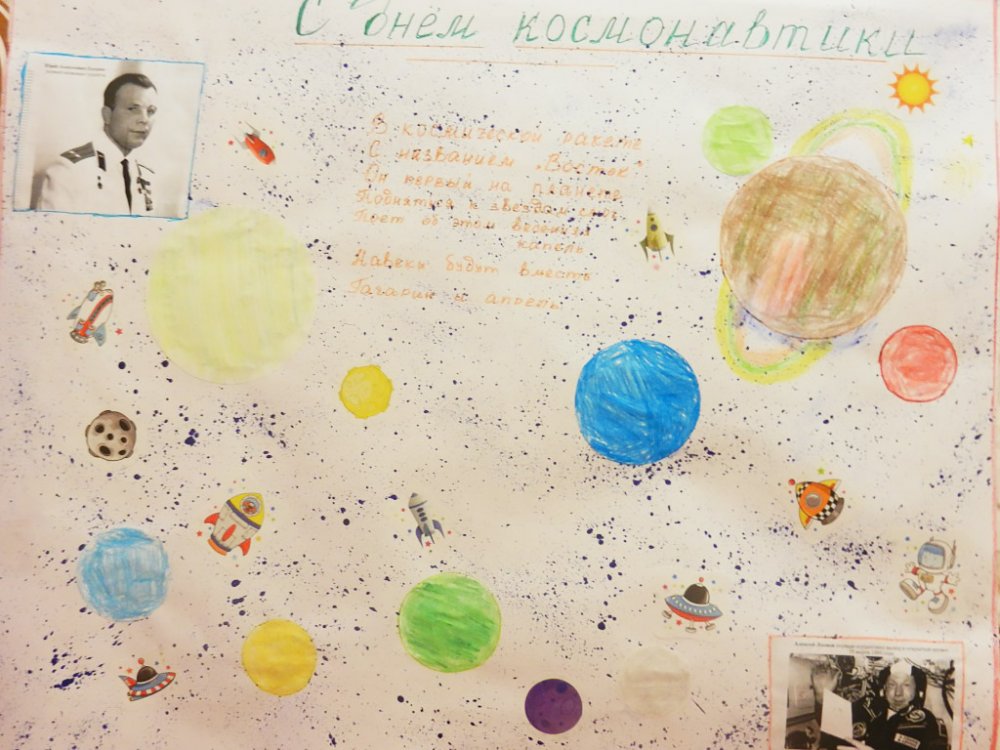 С Днём космонавтики
В космической ракете
С названием „Восток"
Он первый на планете
Подняться к звёздам смог
Поет об этом весенняя
капель
Навеки будут вместе
Гагарин и апрель